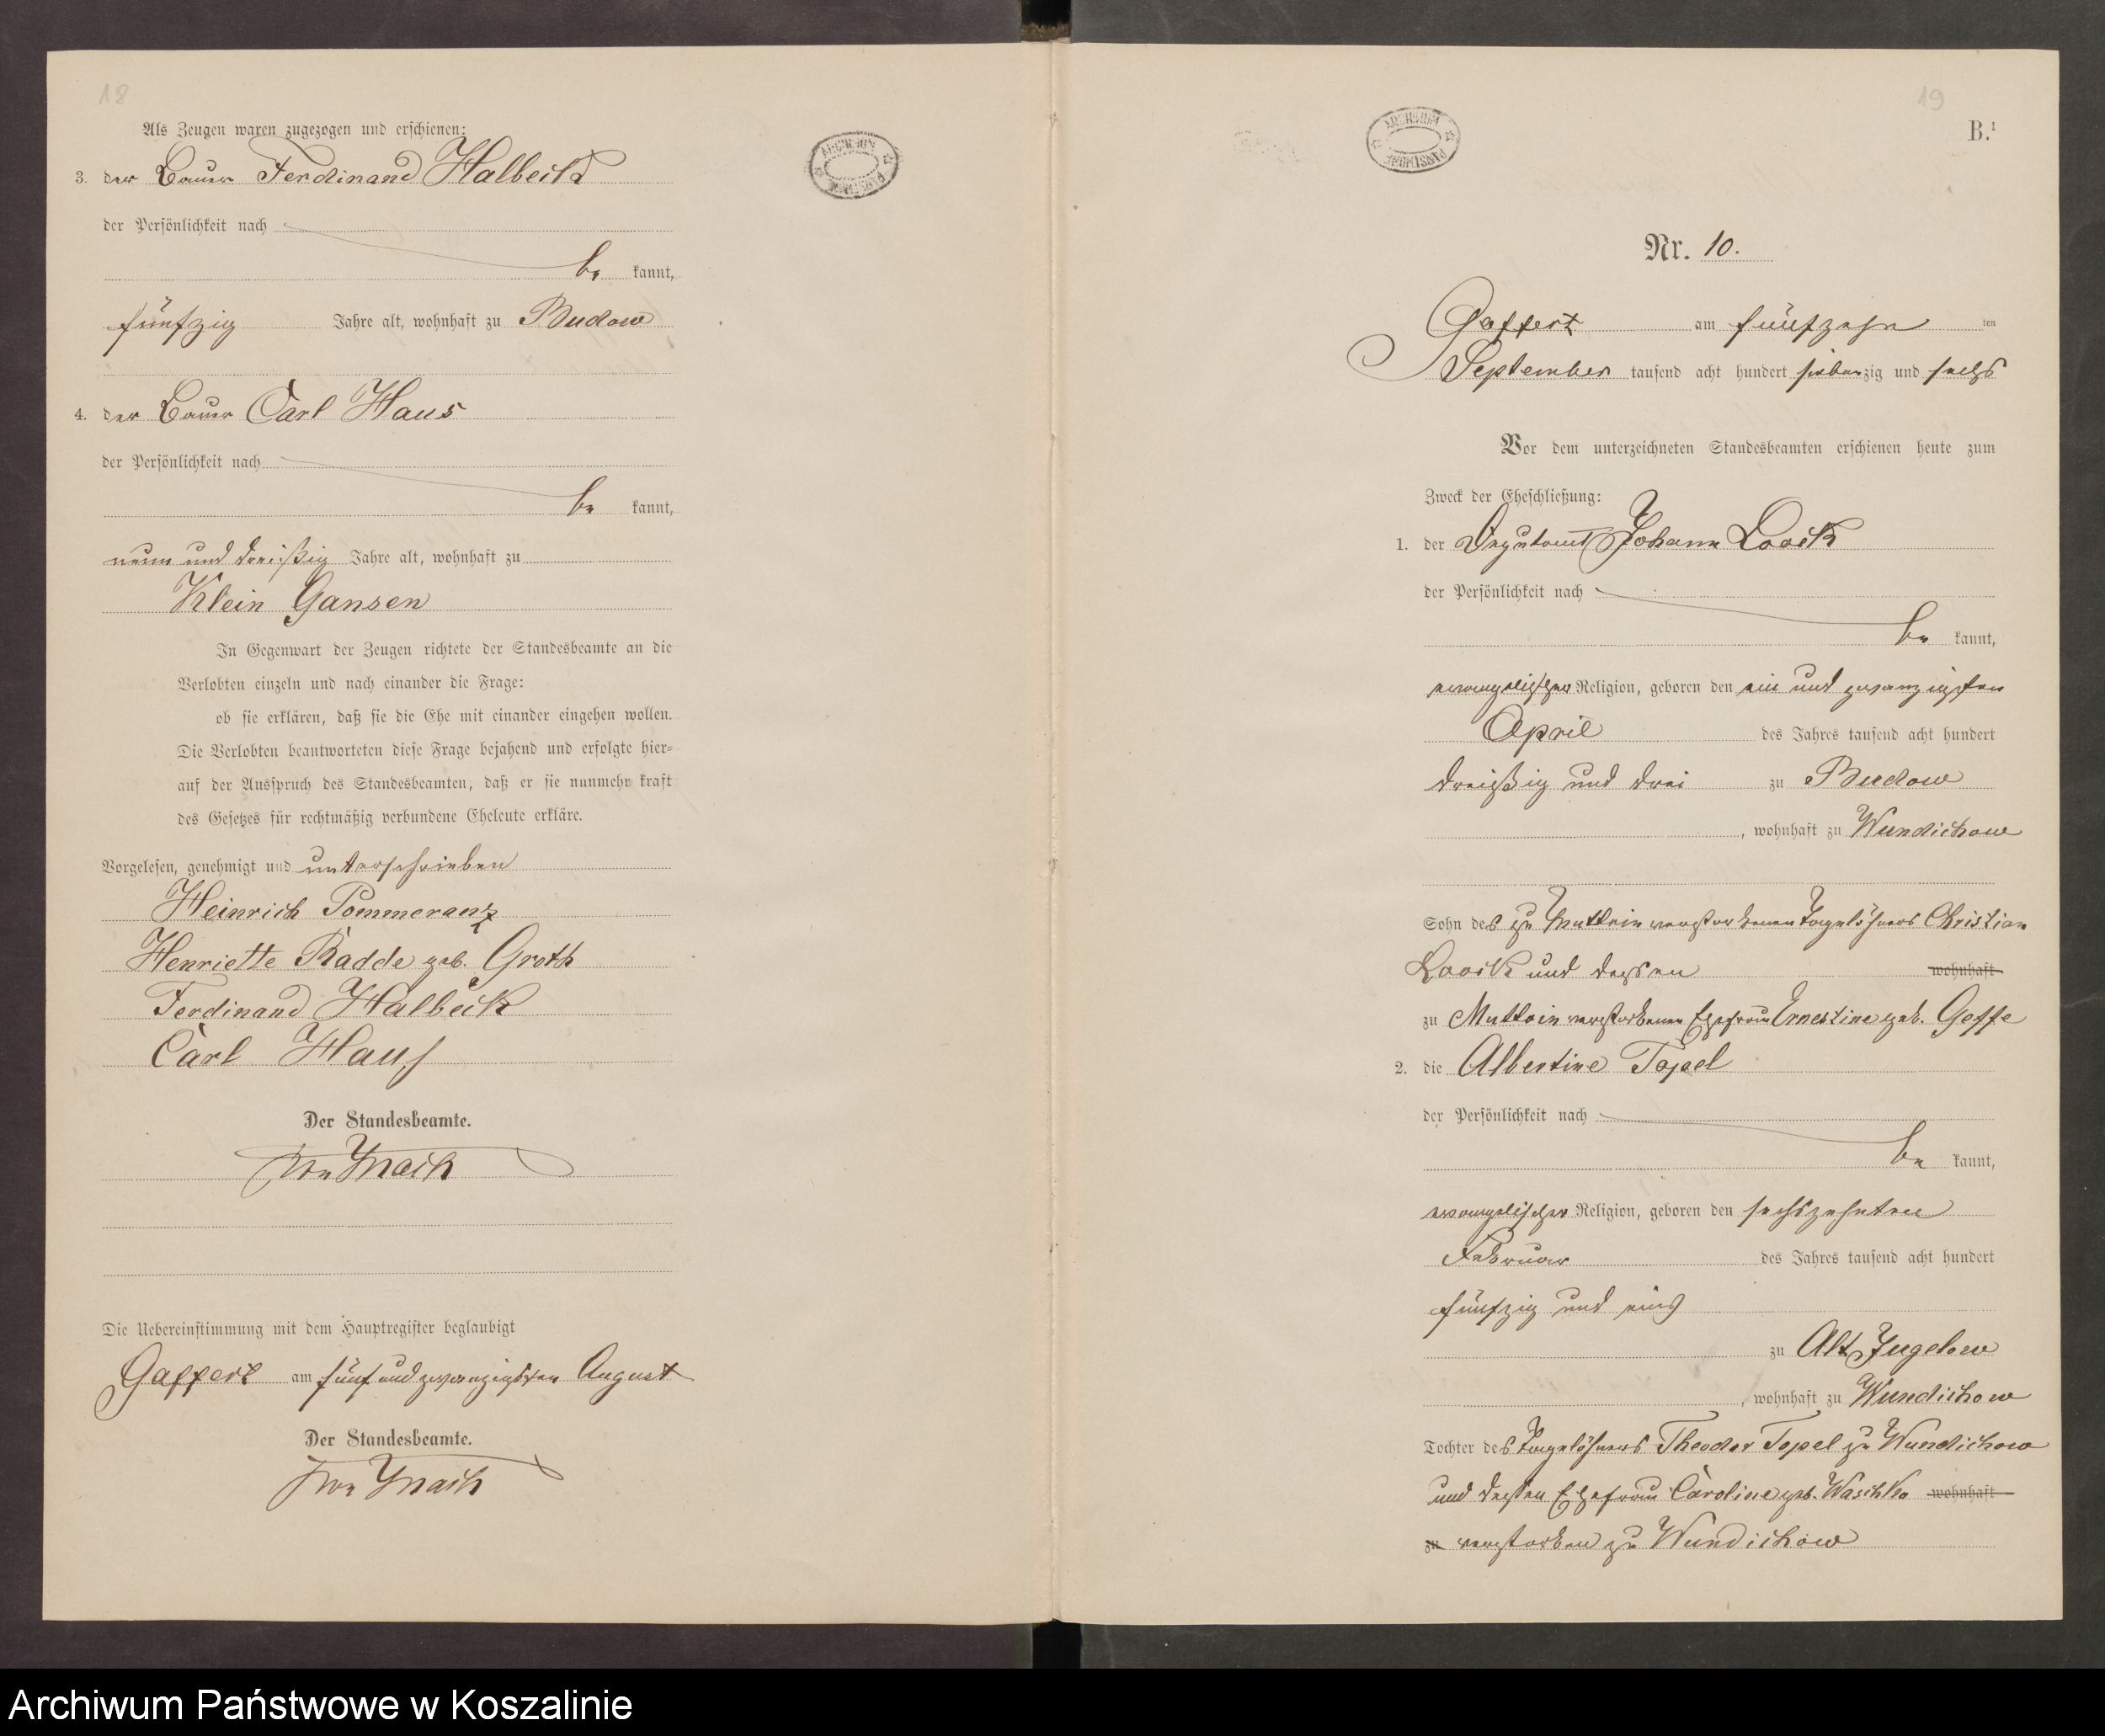 18
Als Zeugen waren zugezogen und erschienen:
3. der Bauer Ferdinand Halbeck
der Persönlichkeit nach
be kannt,
fünfzig Jahre alt, wohnhaft zu Budow
4. der Bauer Carl Haus
der Persönlichkeit nach
be kannt,
neun und dreißig Jahre alt, wohnhaft zu
Klein Gansen
In Gegenwart der Zeugen richtete der Standesbeamte an die
Verlobten einzeln und nach einander die Frage:
ob sie erklären, daß sie die Ehe mit einander eingehen wollen.
Die Verlobten beantworteten diese Frage bejahend und erfolgte hier=
auf der Ausspruch des Standesbeamten, daß er sie nunmehr kraft
des Gesetzes für rechtmäßig verbundene Eheleute erkläre.
Vorgelesen, genehmigt und unterschrieben
Heinrich Pommeranz
Henriette Radde geb. Groth
Ferdinand Halbeck
Carl Hauß
Der Standesbeamte.
von
Die Uebereinstimmung mit dem Hauptregister beglaubigt
Gaffert am fünf und zwanzigsten August
Der Standesbeamte.
von
19
B.¹
ARCHIWUM PAŃSTWOWE
Nr. 10.
Gaffert am fünfzehn ten
September tausend acht hundert siebenzig und sechs
Vor dem unterzeichneten Standesbeamten erschienen heute zum
Zweck der Eheschließung:
1. der Deputant Johann Loock
der Persönlichkeit nach
be kannt,
evangelischer Religion, geboren den ein und zwanzigsten
April des Jahres tausend acht hundert
dreißig und drei zu Budow
, wohnhaft zu Wundichow
Sohn des zu Muttrin verstorbenen Tagelöhners Christian
Loock und dessen wohnhaft
zu Muttrin verstorbenen Ehefrau Ernestine geb. Geffe
2. die Albertine Topel
der Persönlichkeit nach
be kannt,
evangelischer Religion, geboren den sechszehnten
Februar des Jahres tausend acht hundert
fünfzig und eins
zu Alt Jugelow
, wohnhaft zu Wundichow
Tochter des Tagelöhners Theodor Topel zu Wundichow
und dessen Ehefrau Caroline geb. Waschko wohnhaft
zu verstorben zu Wundichow
Archiwum Państwowe w Koszalinie